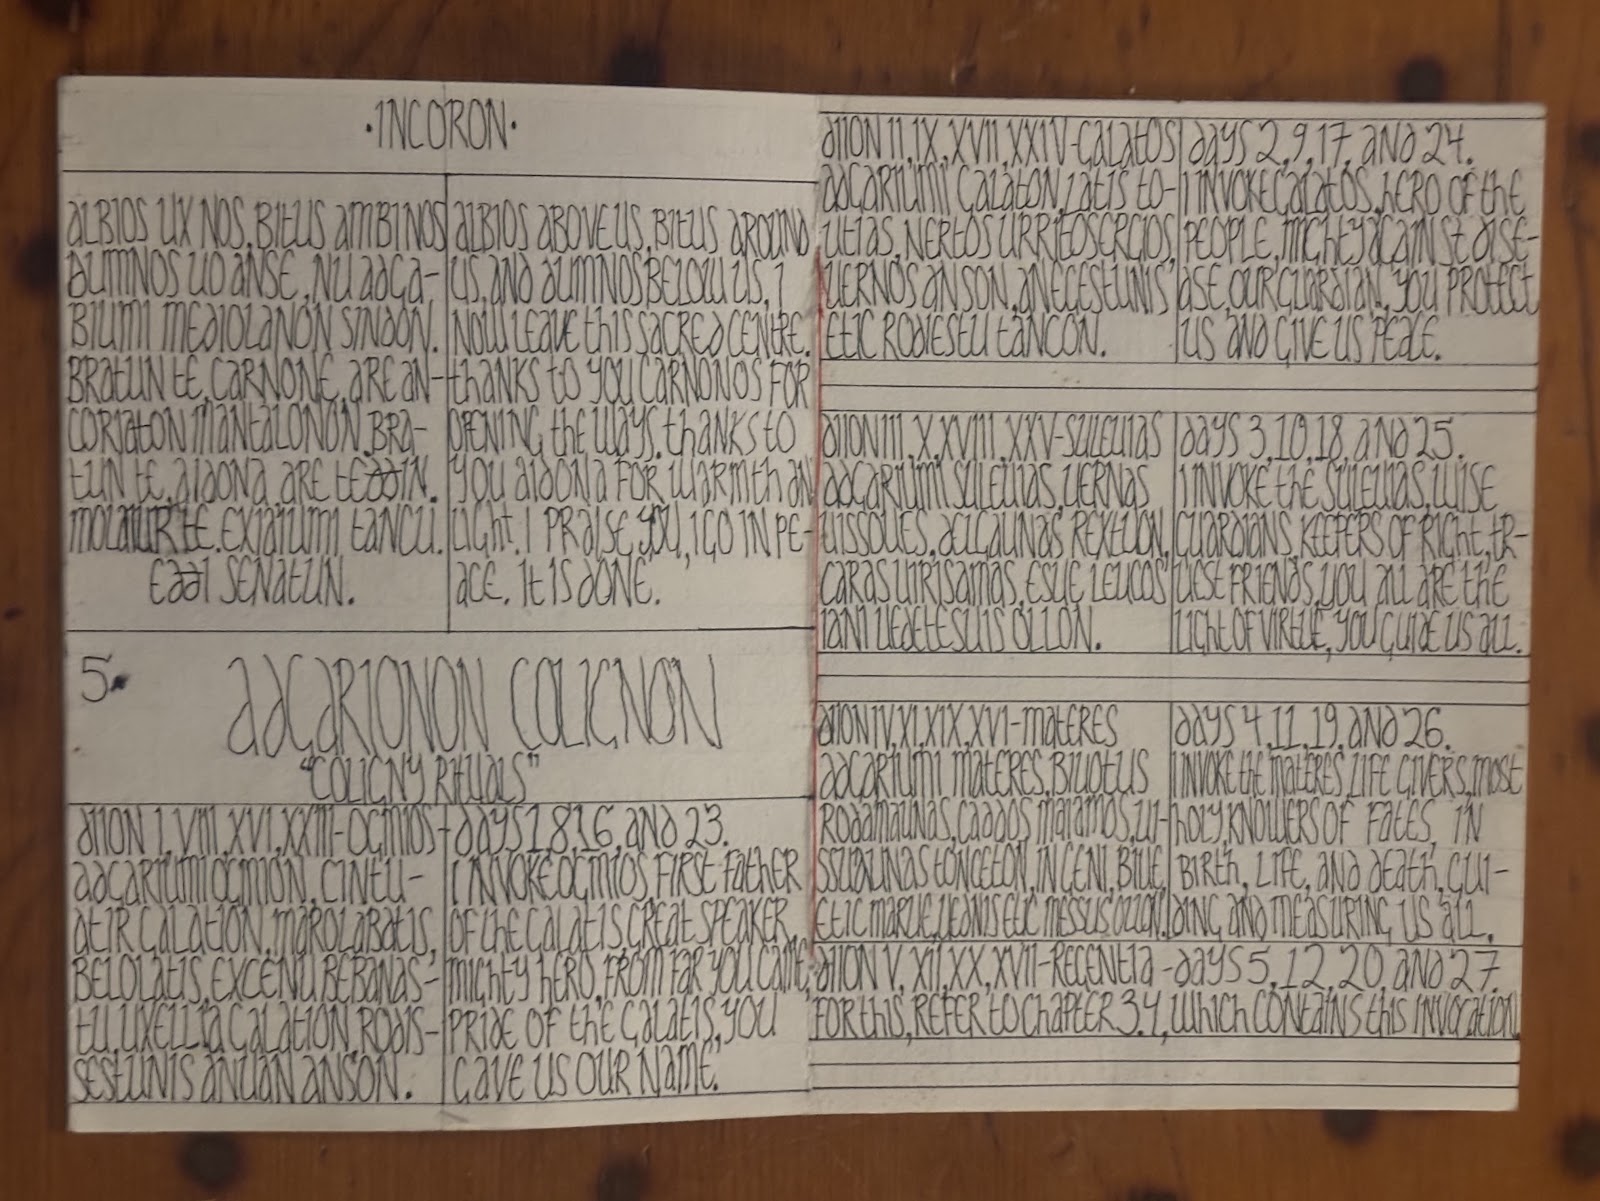 ·INCORON·
ALBIOS UX NOS, BITUS AMBINOS
DUMNOS UO ANSE, NU ADGA-
BIUMI MEDIOLANON SINDON.
BRATUN TE, CARNONE, ARE AN-
CORIATON MANTALONON. BRA-
TUN TE, AIDONA ARE TEDDIN.
MOLATUR TE. EXIAIUMI TANCU.
EDDI SENATUN.
ALBIOS ABOVE US, BITUS AROUND
US, AND DUMNOS BELOW US, I
NOW LEAVE THIS SACRED CENTRE.
THANKS TO YOU CARNONOS FOR
OPENING THE WAYS. THANKS TO
YOU AIDONA FOR WARMTH AN
LIGHT. I PRAISE YOU, I GO IN PE-
ACE. IT IS DONE.
5.
ADGARIONON COLIGNON
"COLIGNY RITUALS"
DIION I, VIII, XVI, XXIII-OGMIOS-
ADGARIUMI OGMION, CINTU-
ATIR GALATION, MAROLABATIS,
BELOLATIS, EXCENU BEBANAS-
TU, UXELLIA GALATION, RODIS-
SESTUNIS ANUAN ANSON.
DAYS 1,8,16, AND 23.
I INVOKE OGMIOS, FIRST FATHER
OF THE GALATIS, GREAT SPEAKER,
MIGHTY HERO, FROM FAR YOU CAME,
PRIDE OF THE GALATIS, YOU
GAVE US OUR NAME.
DIION II, IX, XVII, XXIV-GALATOS
ADGARIUMI GALATON, LATIS TO-
UTIAS, NERTOS URRITOSERGIOS,
UERNOS ANSON, ANEGESTUNIS
ETIC RODIESTU TANCON.
DAYS 2, 9, 17, AND 24.
I INVOKE GALATOS, HERO OF THE
PEOPLE, MIGHTY AGAINST DISE-
ASE, OUR GUARDIAN, YOU PROTECT
US AND GIVE US PEACE.
DIION III, X, XVIII, XXV-SULEUIAS
ADGARIUMI SULEUIAS, UERNAS
UISSOUES, DELGAUNAS REXTUON,
CARAS UIRISAMAS, ESUE LEUCOS
IANI UEDETESUIS OLLON.
DAYS 3, 10, 18, AND 25.
I INVOKE THE SULEUIAS, WISE
GUARDIANS, KEEPERS OF RIGHT, TR-
UEST FRIENDS, YOU ALL ARE THE
LIGHT OF VIRTUE, YOU GUIDE US ALL.
DIION IV, XI, XIX, XVI-MATERES
ADGARIUMI MATERES, BIUOTUS
RODAMAUNAS, CADDOS MAIAMOS, UI-
SSUDUNAS TONCETON, IN GENI, BIUE,
ETIC MARUE, UEDNIS ETIC MESSUS OLLON.
DAYS 4, 11, 19, AND 26.
I INVOKE THE MATERES, LIFE GIVERS, MOST
HOLY, KNOWERS OF FATES, IN
BIRTH, LIFE, AND DEATH, GUI-
DING AND MEASURING US ALL.
DIION V, XII, XX, XVII-REGENTIA-DAYS 5, 12, 20, AND 27.
FOR THIS, REFER TO CHAPTER 3.4, WHICH CONTAINS THIS INVOCATION.